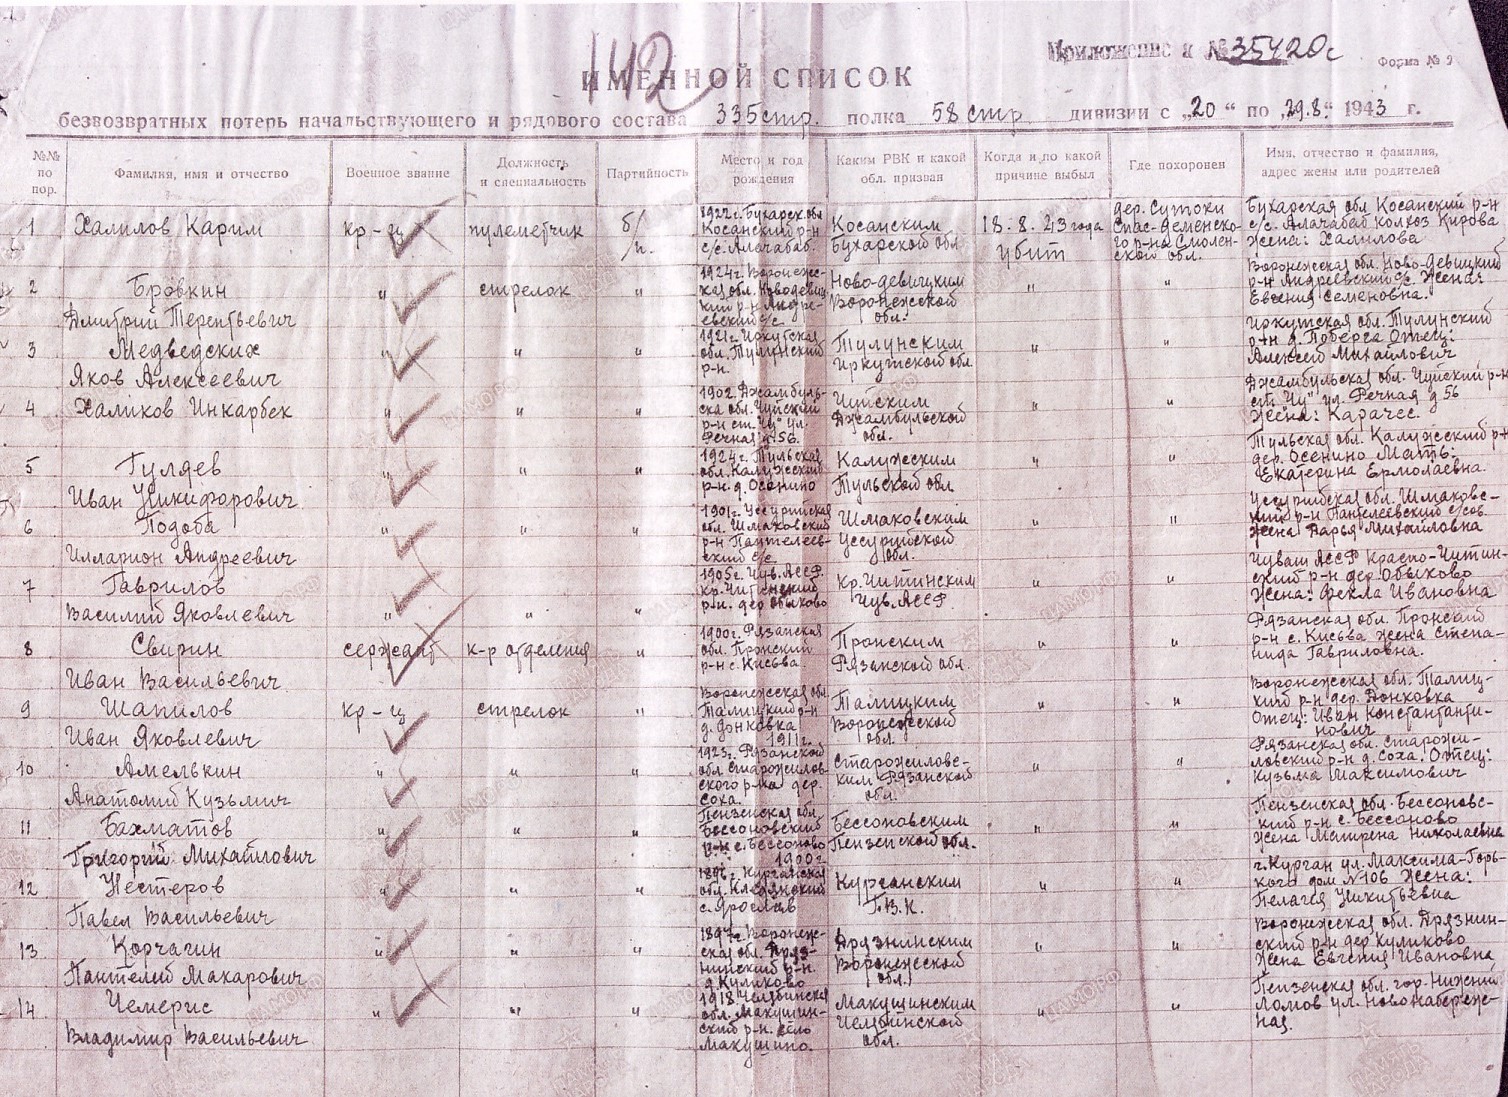 142
Приложение к № 35420с
Форма № 9
ИМЕННОЙ СПИСОК
безвозвратных потерь начальствующего и рядового состава 335 стр. полка 58 стр дивизии с „20“ по „29.8.“ 1943 г.
№№ по пор. Фамилия, имя и отчество Военное звание Должность и специальность Партийность Место и год рождения Каким РВК и какой обл. призван Когда и по какой причине выбыл Где похоронен Имя, отчество и фамилия, адрес жены или родителей
1 Халилов Карим кр-ц пулеметчик б/п. 1922 г. Бухарск. обл Косанский р-н с/с. Алачабаб. Косанским Бухарской обл 18.8.43 года убит дер. Сутоки Спас-Деменского р-на Смоленской обл. Бухарская обл Косанский р-н с/с. Алачабаб колхоз Кирова жена: Халилова
2 Бровкин Дмитрий Терентьевич " стрелок " 1924 г. Воронежская обл. Новодевицкий р-н Андреевский с/с Ново-девицким Воронежской обл. " " Воронежская обл. Ново-девицкий р-н Андреевский с/с. Жена: Евгения Семеновна.
3 Медведских Яков Алексеевич " " " 1921 г. Иркутская обл. Тулунский р-н. Тулунским Иркутской обл. " " Иркутская обл. Тулунский р-н д. Отец: Алексей Михайлович
4 Халиков Инкарбек " " " 1902 Джамбульска обл. Чуйский р-н ст. „Чу“ ул. Речная д. 56. Чуйским Джамбульской обл. " " Джамбульская обл. Чуйский р-н ст. „Чу“ ул. Речная д 56 Жена: Карачес.
5 Гуляев Иван Никифорович " " " 1924 г. Тульская обл. Калужский р-н. д. Осенино Калужским Тульской обл " " Тульская обл. Калужский р-н дер. Осенино Мать: Екатерина Ермолаевна.
6 Подоба Илларион Андреевич " " " 1901 г. Уссурийская обл. Шмаковский р-н Пантелеевский с/с. Шмаковским Уссурийской обл. " " Уссурийская обл. Шмаковский р-н Пантелеевский с/сов. Жена Дарья Михайловна
7 Гаврилов Василий Яковлевич " " " 1905 г. Чув. АССР Кр. Читинский р-н. дер Обыково Кр. Читинским Чув. АССР. " " Чуваш АССР Красно-Читинский р-н дер. Обыково Жена: Фекла Ивановна
8 Свирин Иван Васильевич сержант к-р отделения " 1900 г. Рязанская обл. Пронский р-н с. Кисьва. Пронским Рязанской обл. " " Рязанская обл. Пронский р-н с. Кисьва Жена Степанида Гавриловна.
9 Шапилов Иван Яковлевич кр-ц стрелок " Воронежская обл Талицкий р-н д. Донковка 1911 г. Талицким Воронежской обл. " " Воронежская обл. Талицкий р-н дер. Донковка Отец: Иван Константинович
10 Амелькин Анатолий Кузьмич " " " 1923 г. Рязанской обл Старожиловского р-на дер. Соха. Старожиловским Рязанской обл. " " Рязанская обл. Старожиловский р-н д. Соха. Отец: Кузьма Максимович
11 Бахматов Григорий Михайлович " " " Пензенская обл. Бессоновский р-н с. Бессоново 1900 г. Бессоновским Пензенской обл. " " Пензенская обл. Бессоновский р-н с. Бессоново Жена Матрена Николаевна
12 Нестеров Павел Васильевич " " " 1896 г. Курганская обл. с. Ярослав Курганским Г.В.К. " " г. Курган ул. Максима-Горького дом № 106 Жена: Пелагея Никитьевна
13 Корчагин Пантелий Макарович " " " 1897 г. Воронежская обл. Дрязнинский р-н. д. Куликово Дрязнинским Воронежской обл. " " Воронежская обл. Дрязнинский р-н дер Куликово Жена Евгения Ивановна
14 Чемерис Владимир Васильевич " " " 1918 Челябинская обл. Макушинский р-н. село Макушино. Макушинским Челябинской обл. " " Пензенская обл. гор. Нижний Ломов ул. Ново набережная.
ПАМЯТЬ НАРОДА
ЦАМО РФ